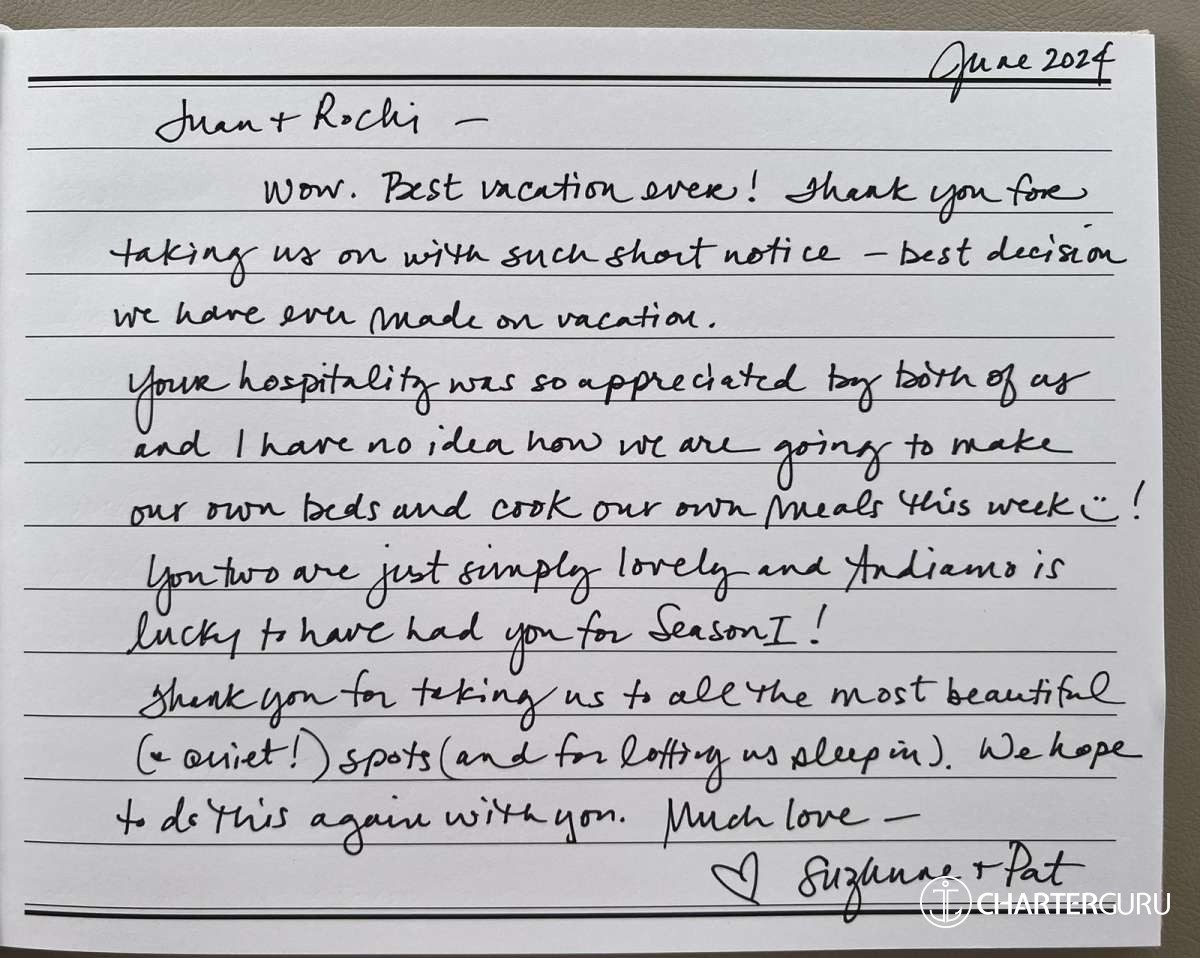 June 2024
Juan + Rochi —
Wow. Best vacation ever! Thank you for
taking us on with such short notice – best decision
we have ever made on vacation.
Your hospitality was so appreciated by both of us
and I have no idea how we are going to make
our own beds and cook our own meals this week :)!
You two are just simply lovely and Andiamo is
lucky to have had you for Season I!
Thank you for taking us to all the most beautiful
(+ quiet!) spots (and for letting us sleep in). We hope
to do this again with you. Much love –
♡ Suzanne + Pat
CHARTERGURU